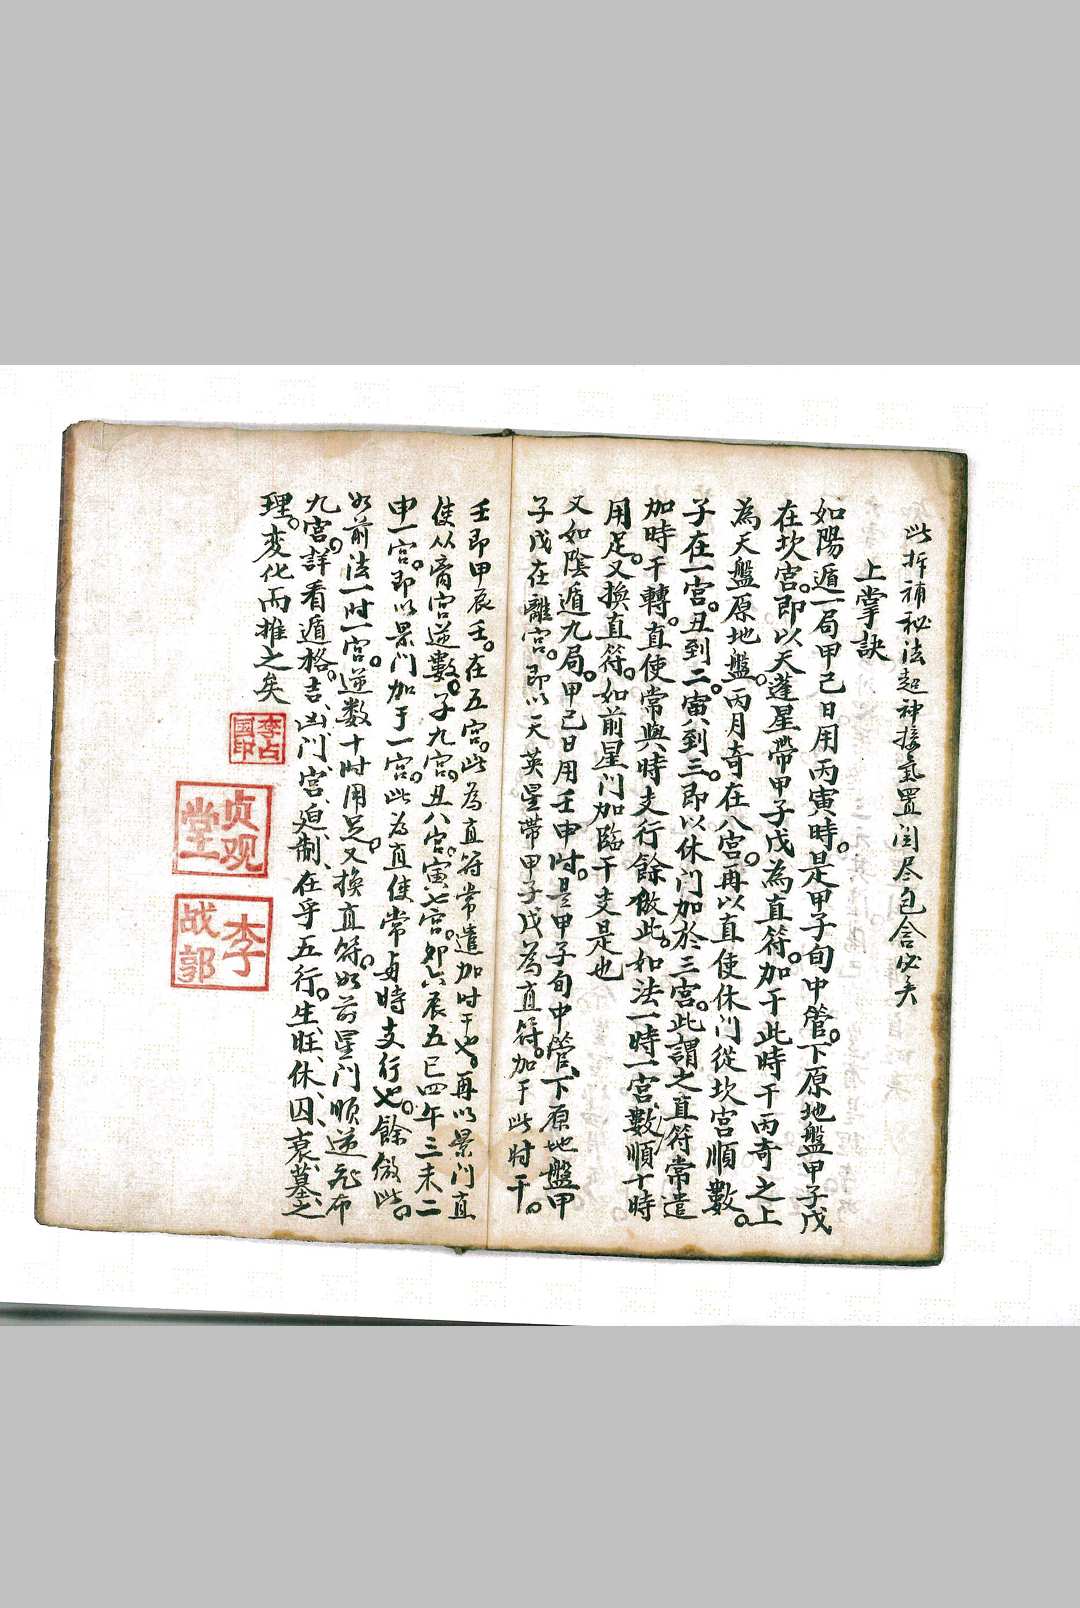 此拆補秘法超神接氣置闰尽包含定矢
上掌訣
如陽遁一局甲己日用丙寅時。是甲子旬中管。下原地盤甲子戊
在坎宫。即以天蓬星帶甲子戊為直符。加于此時干丙奇之上
為天盤原地盤。丙月奇在八宫。再以直使休门從坎宫順數。
子在一宫。丑到二。寅到三。即以休门加於三宫。此謂之直符常遣
加時干轉。直使常與時支行餘倣此。如法一時一宫數順十時
用足。又换直符。如前星门加臨干支是也
又如陰遁九局。甲己日用壬申时。是甲子旬中管、下原地盤甲
子戊在離宫。即以天英星带甲子戊為直符。加于此时干。
壬即甲辰壬。在五宫。此為直符常遣加时干也。再以景门直
使从离宫逆數。子九宫。丑八宫。寅七宫。卯六辰五巳四午三未二
申一宫。即以景门加于一宫。此為直使常與時支行也。餘倣此。
如前法一时一宫。逆数十时用足。又换直符。如前星门顺逆布
九宫。詳看遁格。吉、凶门宫、迫、制、在乎五行。生、旺、休、囚、衰、墓、之
理。变化而推之矣
李占國印
贞观堂一
李战郭